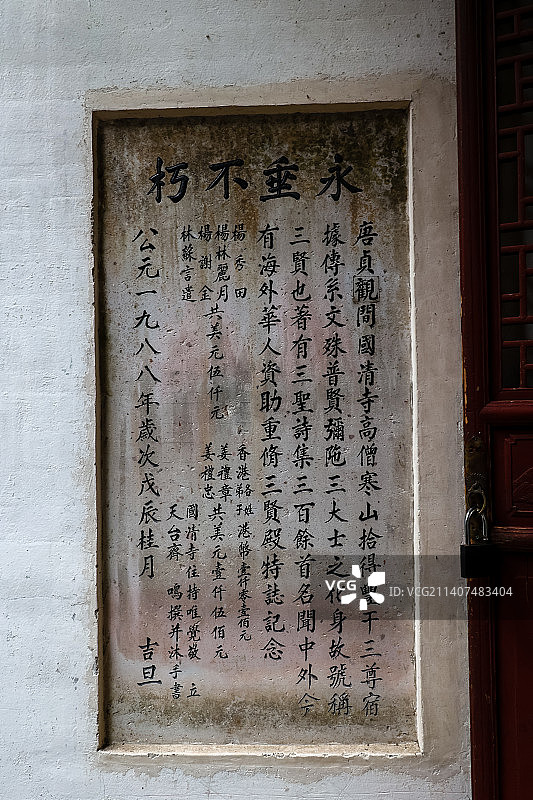 永垂不朽
唐貞觀間國清寺高僧寒山拾得豐干三尊宿
據傳系文殊普賢彌陁三大士之化身故號稱
三賢也著有三聖詩集三百餘首名聞中外今
有海外華人資助重脩三賢殿特誌記念
楊秀田
楊林麗月
楊謝金
林蘇言遣
共美元伍仟元
香港弟子
港幣壹仟零壹佰元
姜禮章
姜禮忠
共美元壹仟伍佰元
國清寺住持唯覺敬立
天台齊鳴撰并沐手書
公元一九八八年歲次戊辰桂月吉旦
VCG
ID:VCG211407483404